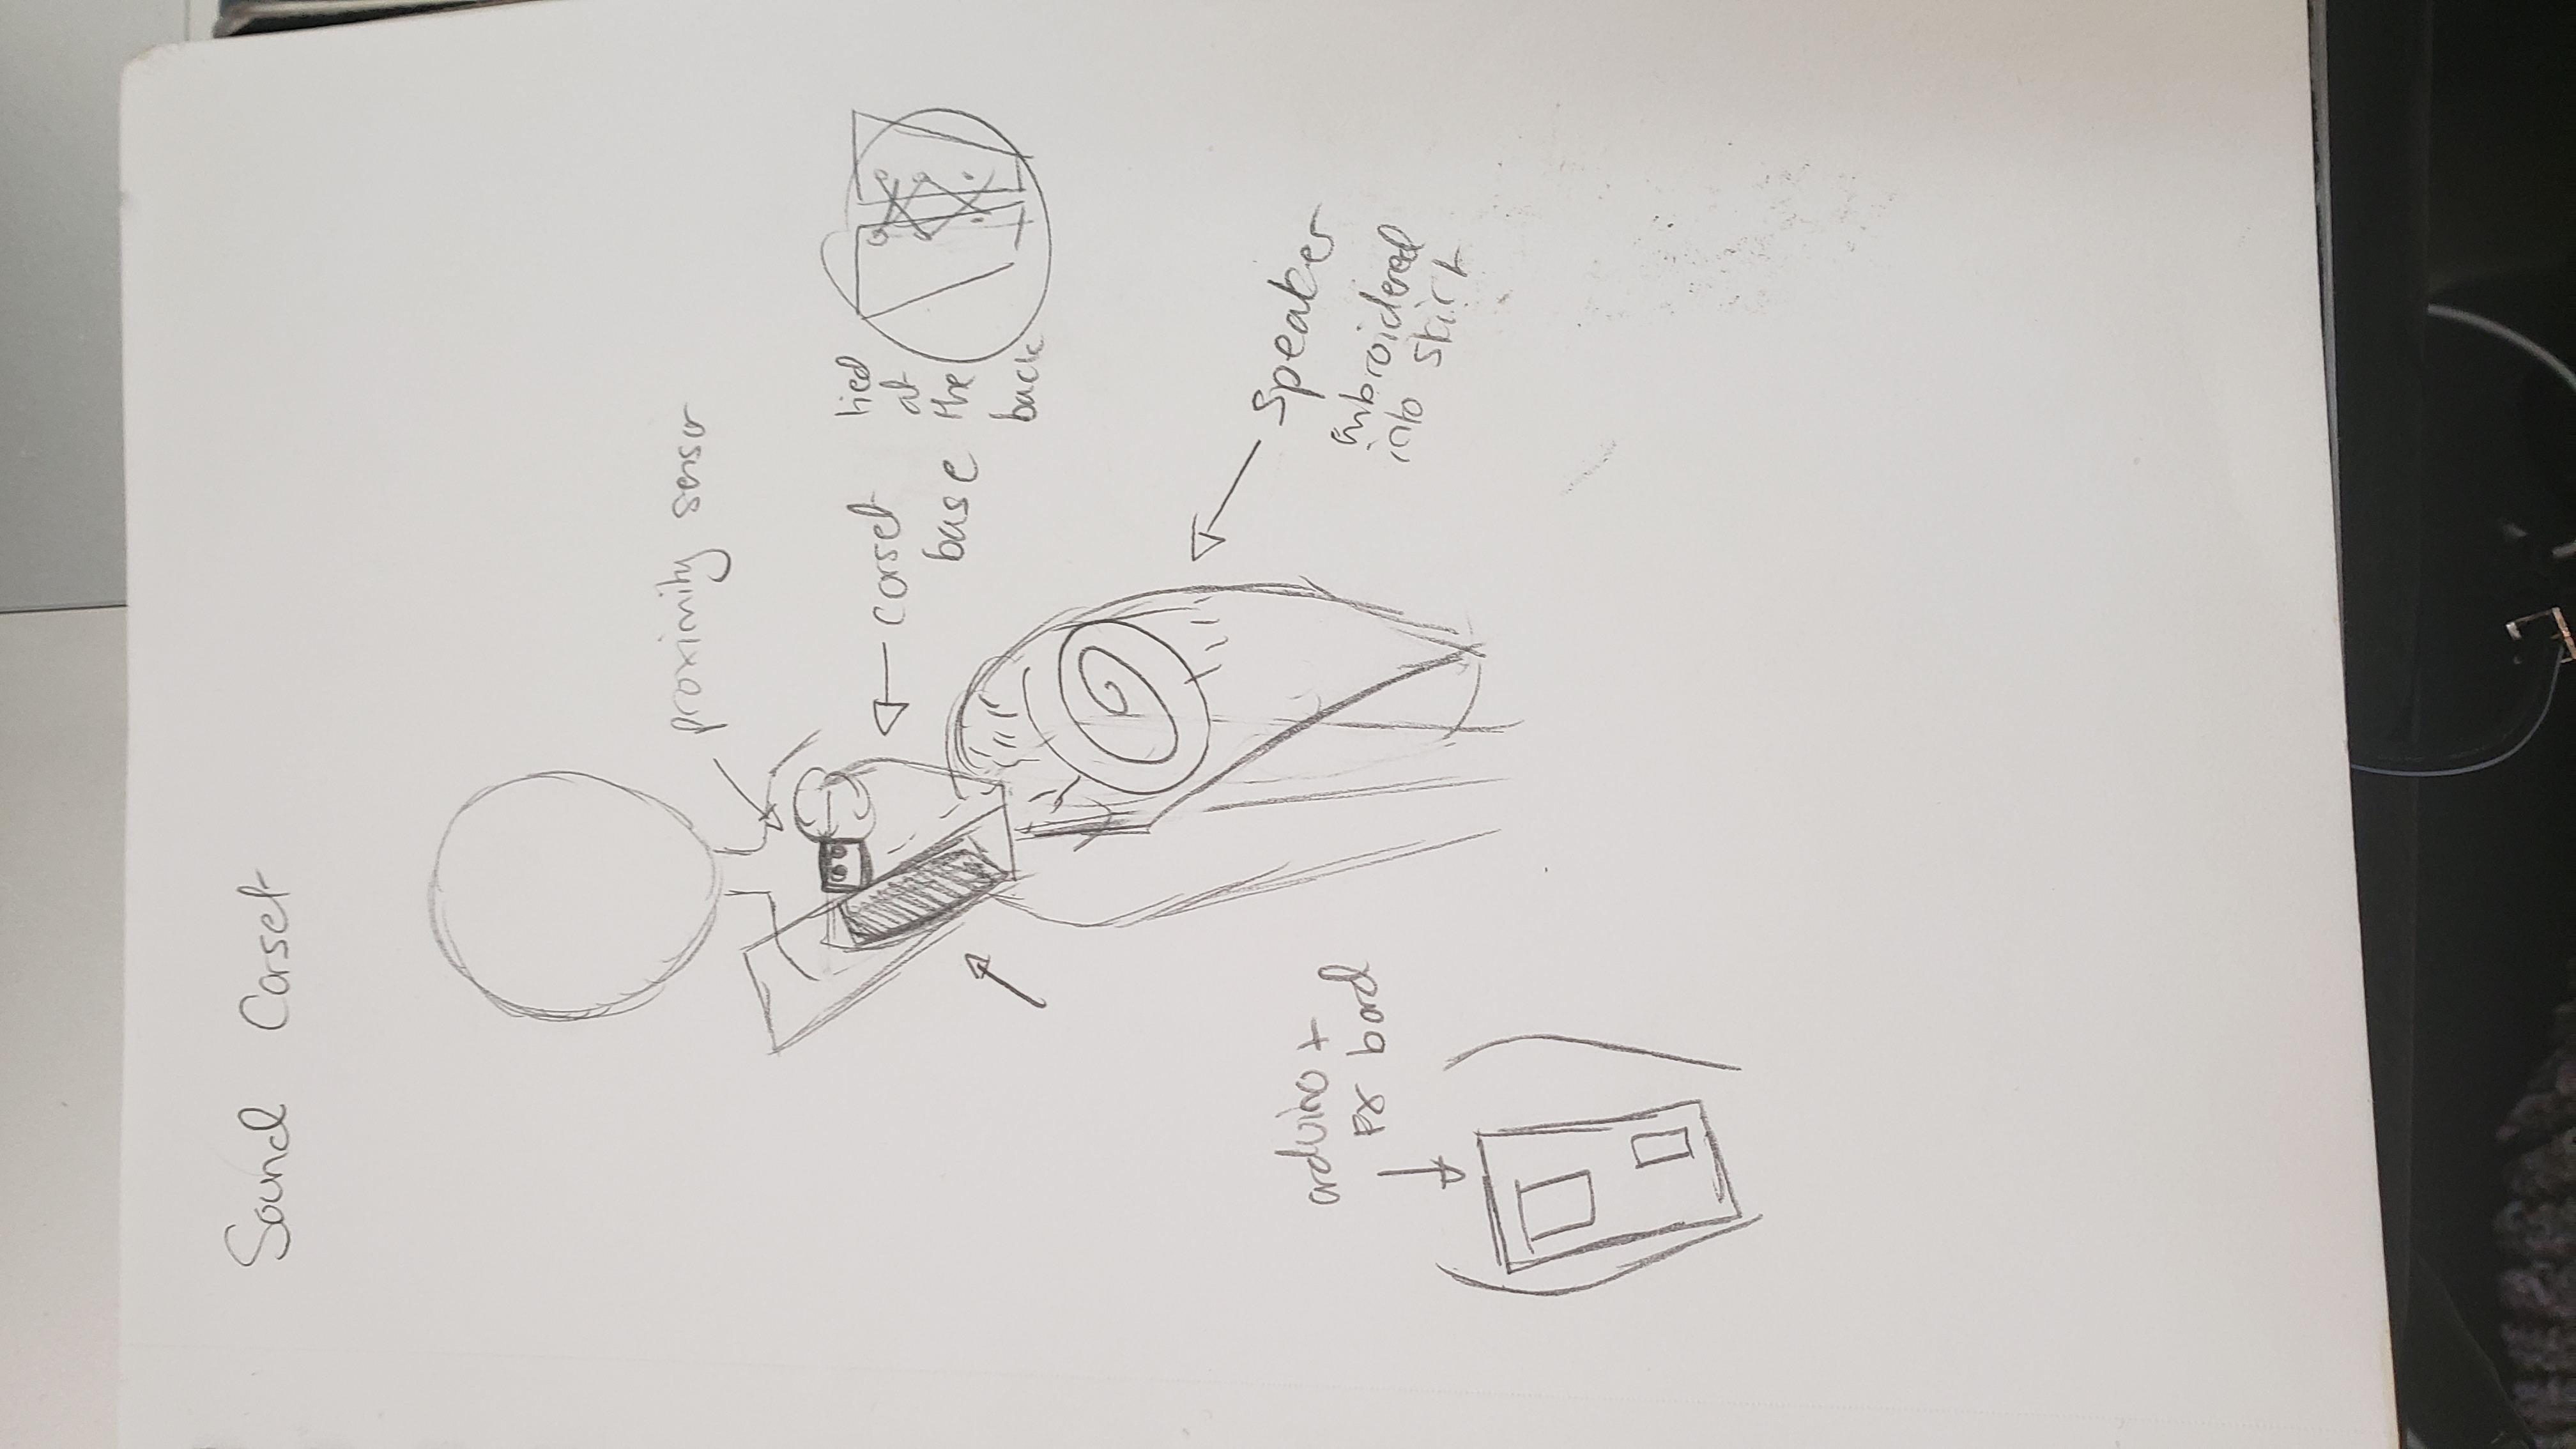 Sound Corset
proximity sensor
corset
base
tied
at
the
back
speaker
embroidered
into skirt
arduino +
FX bord